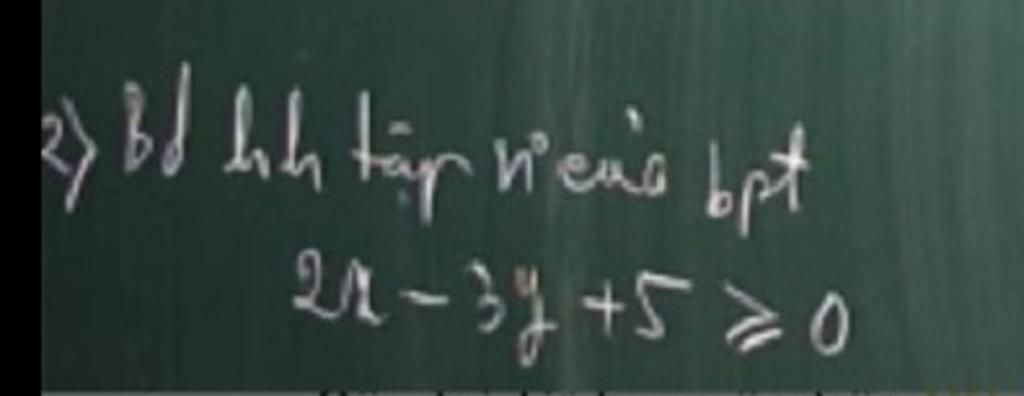 2) Bd hh tập n° của bpt
2x - 3y + 5 ⩾ 0